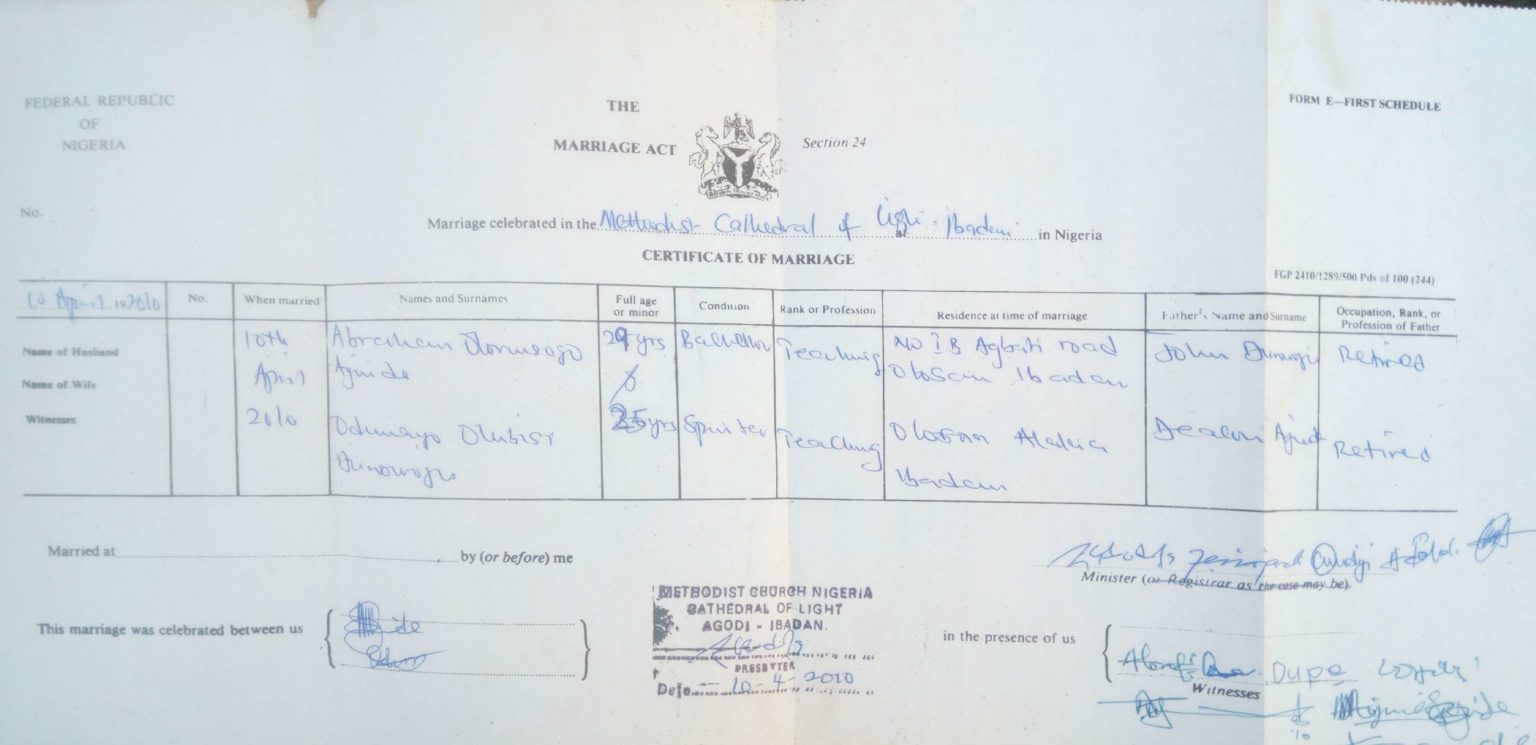 FEDERAL REPUBLIC
OF
NIGERIA
THE
MARRIAGE ACT
Section 24
FORM E—FIRST SCHEDULE
No.
Marriage celebrated in the Methodist Cathedral of Light at Ibadan in Nigeria
CERTIFICATE OF MARRIAGE
FGP 2410/1289/500 Pds of 100 (244)
10 April 2010
No.
When married
Names and Surnames
Full age
or minor
Condition
Rank or Profession
Residence at time of marriage
Father's Name and Surname
Occupation, Rank, or
Profession of Father
Name of Husband
Name of Wife
Witnesses
10th
April
2010
Abraham
Ajide
29 yrs
Bachelor
Teaching
Agbati road
Olosan Ibadan
John
Retired
Odunayo Olubisi
25 yrs
Spinster
Teaching
Olosan Alakia
Ibadan
Deacon Ajide
Retired
Married at by (or before) me
Minister (or Registrar as the case may be)
This marriage was celebrated between us
METHODIST CHURCH NIGERIA
CATHEDRAL OF LIGHT
AGODI - IBADAN.
PRESBYTER
Date 10-4-2010
in the presence of us
Dupe
Witnesses